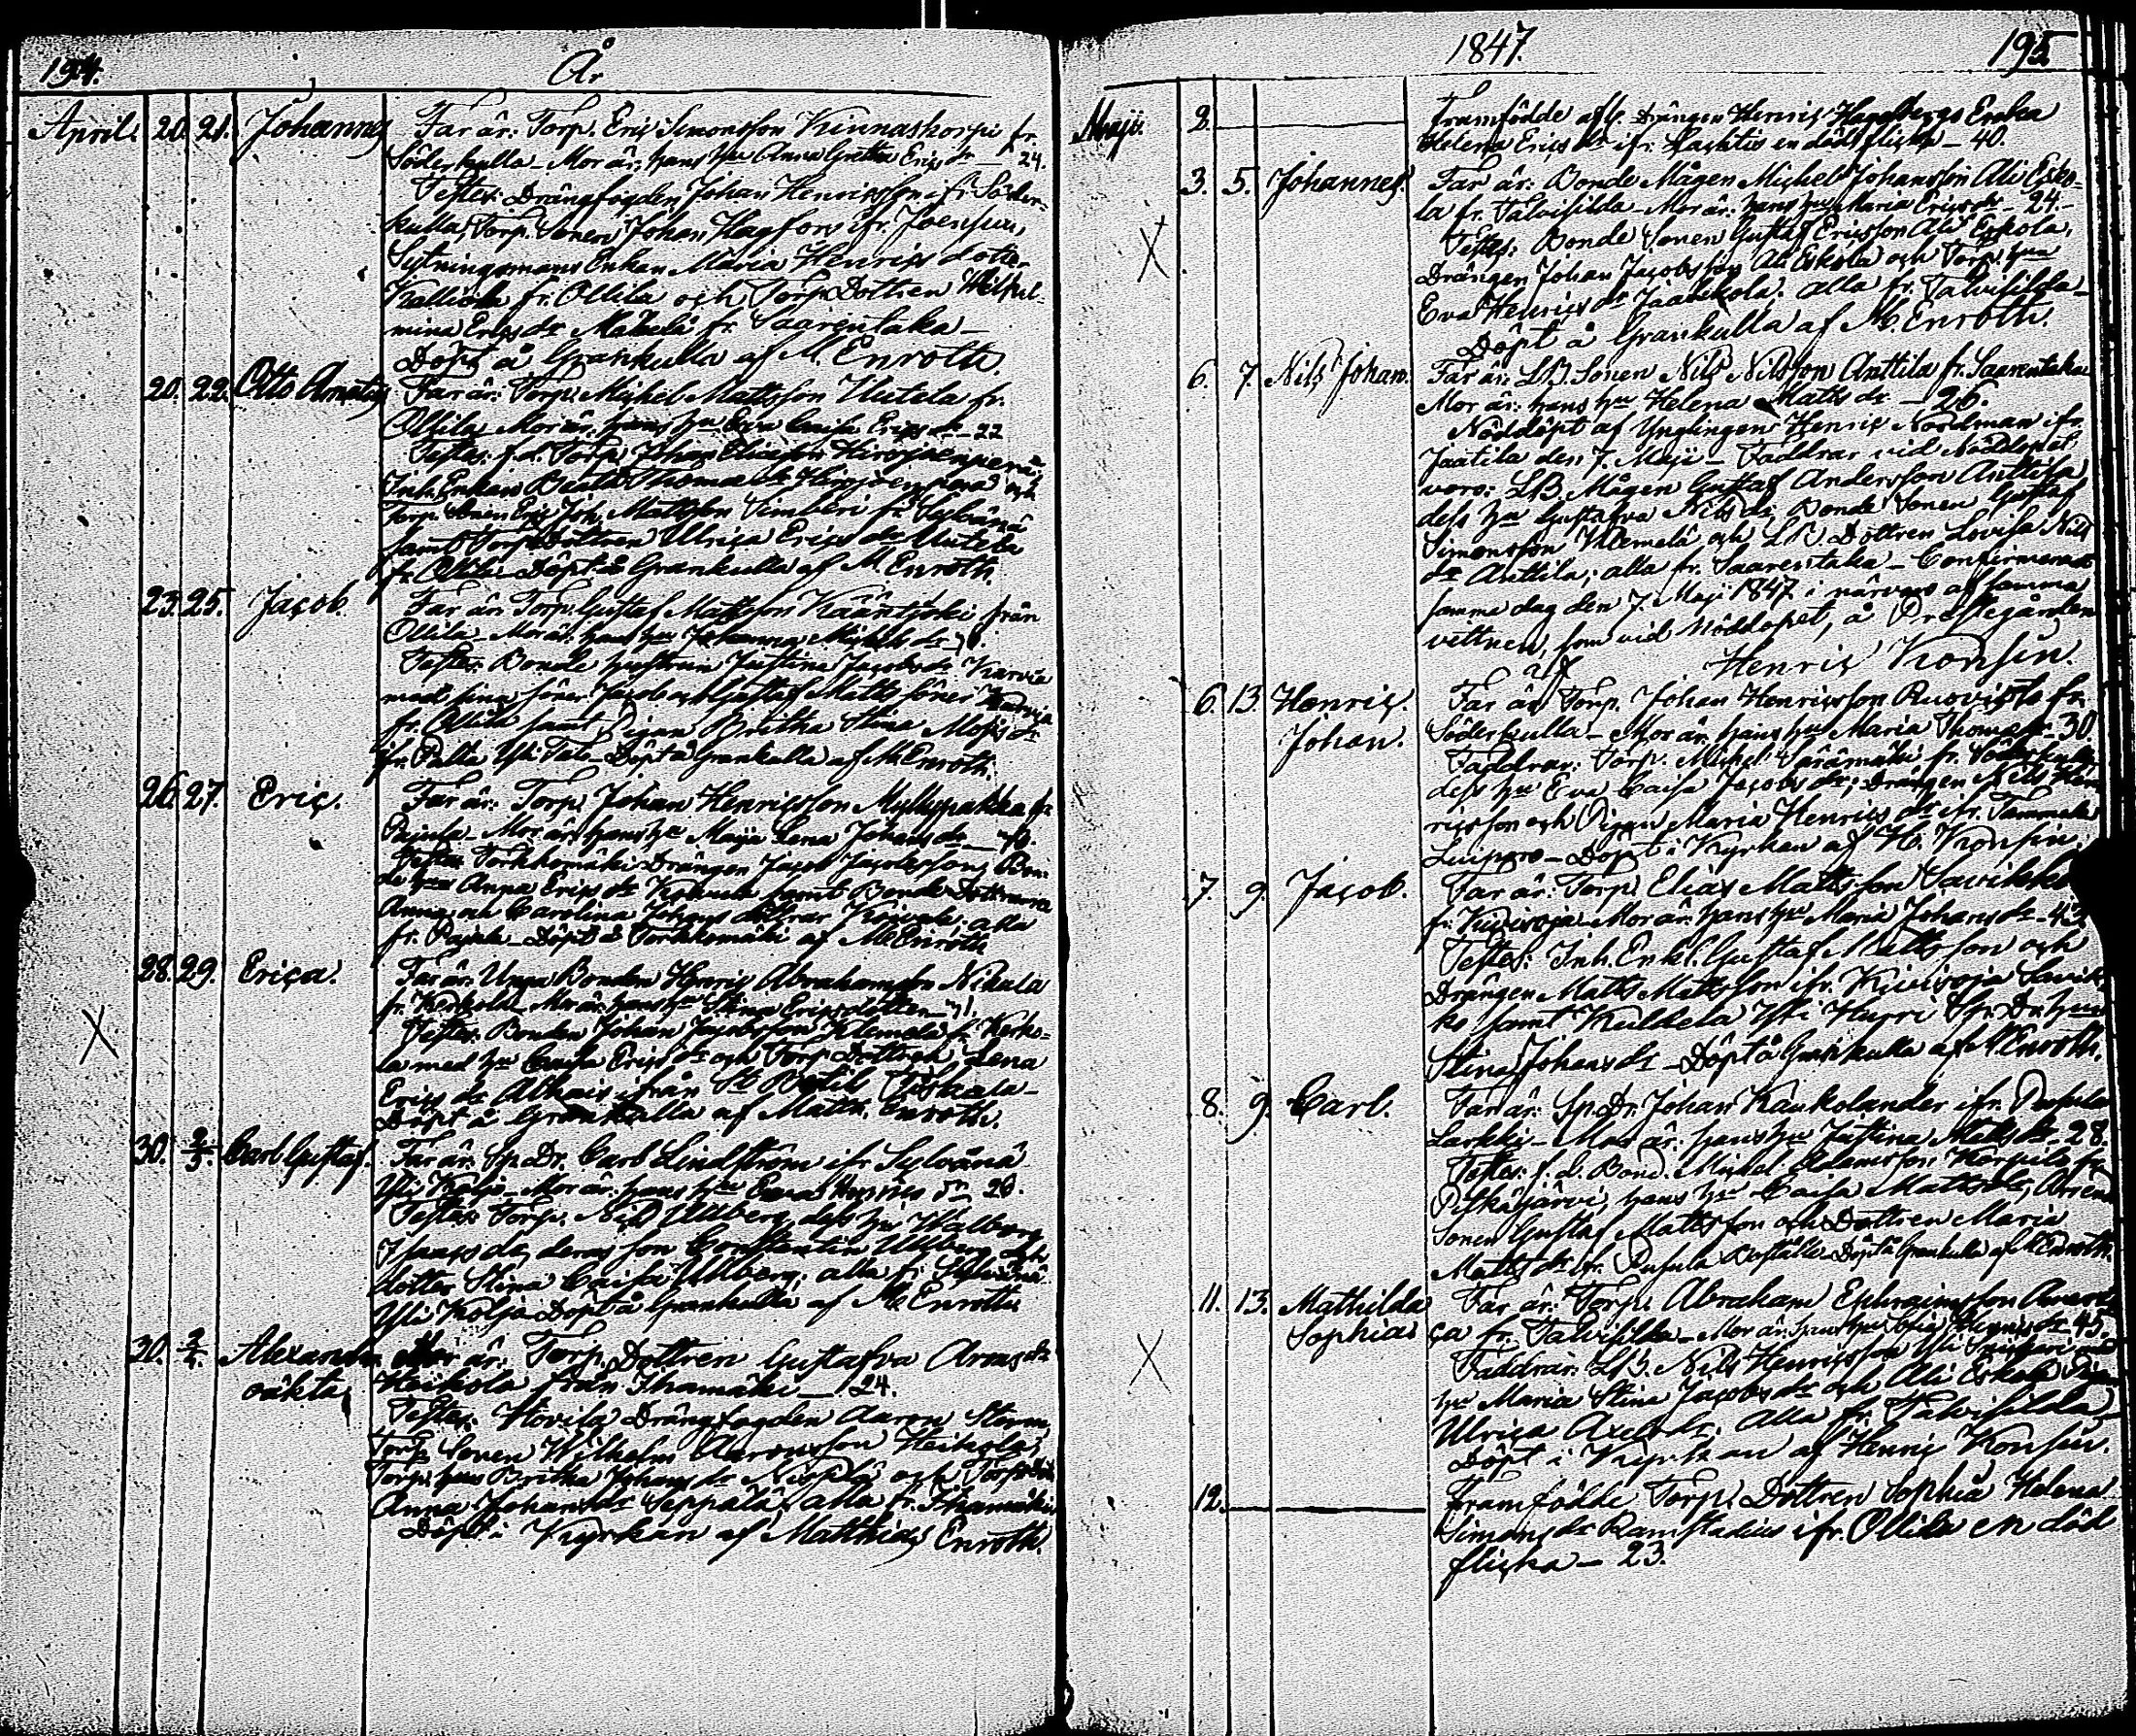 194.
År
April. 20. 21. Johannes
Far är: Torp. Eriç Simonsson Kinnaskorpi fr.
Söderkulla - Mor är: hans hu Anna Gretha Eriçs dr - 24.
Testes: Drängfogden Johan Henriçsson ifr. Söder-
kulla, Torp. Sonen Johan Hagfors ifr. Joensuu,
Sytningsmans Enkan Maria Henriçs dotter
Kalliola fr. Ollila och Torp. Dottren Wilhel-
mina Eriçs dr Mäkelä fr. Saarentaka -
Döpt å Grankulla af M. Enroth.
20. 22. Otto
Far är: Torp. Miçhel Mattsson Uutela fr.
Ollila - Mor är: hans hu Eva Caisa Eriçs dr - 22
Testes: f.d. Torp. Johan
Inh. Enkan Thomæ dr och
Torp. Sonen Eriç Joh. Mattsson Simberi fr.
samt Torp. Dottren Ulriça Eriçs dr Uutela
fr. Ollila - Döpt å Grankulla af M. Enroth.
23. 25. Jaçob.
Far är: Torp. Gustaf Mattsson från
Ollila - Mor är: hans hu Johanna Miçhels dr
Testes: Bonde hustrun Justina Jaçobs dr
med sina söner Jaçob och Gustaf Matts söner
fr. Ollila samt Pigan Britha Stina Mosis dr
ifr. Palta Yli Talo - Döpt å Grankulla af M. Enroth.
26. 27. Eriç.
Far är: Torp. Johan Henriçsson Myllypakka fr.
Pajula - Mor är: hans hu Maja Lena Johans dr - 40.
Testes: Torkkomäki Drängen Jaçob Jaçobsson, Bon-
de hun Anna Eriçs dr samt Bonde Döttrarna
Anna och Carolina Johans döttrar alla
fr. Pajula - Döpt å Torkkomäki af M. Enroth
28. 29. Eriça.
Far är: Unga Bonden Henriç Abrahamsson Nikula
fr. Kerkola - Mor är: hans hu Stina Eriçs dotter
X
Testes: Bonden Johan Jaçobsson Klemelä fr. Kerko-
la med hu Caisa Eriçs dr och Torp. Dottren Lena
Eriçs dr ifrån
Döpt å Grankulla af Matth. Enroth.
30. 2/5. Carl Gustaf.
Far är: Sp. Dr. Carl Lindström ifr. Sylvänä
Yli Kolja - Mor är: hans hu Eva Henriçs dr 26.
Testes: Torp. Nils Ullberg dess hu Walborg
dr, deras son Constantin Ullberg och
dotter Stina Caisa Ullberg; alla fr. Sylvänä
Yli Kolja - Döpt å Grankulla af M. Enroth.
30. Alexander
oäkta
Mor är: Torp. Dottren Gustafva Arons dr
Heikola från Ihamäki - 24.
Testes: Hovila Drängfogden Aaron Storm,
Torp. Sonen Wilhelm Aaronsson Heikola,
Torp. hun Britha Johans dr och Torp. Dot.
Anna Johans dr Seppälä, alla fr. Ihamäki.
Döpt i Kyrkan af Matthias Enroth.
1847.
195
Maji. 2.
Framfödde afl. Drängen Henriç Hagelbergs Enka
Helena Eriçs dr ifr. en död fliçka - 40.
3. 5. Johannes.
Far är: Bonde Mågen Miçhel Johansson Ali Esko-
la fr. Talvisilda - Mor är: hans hu Maria Eriçs dr - 24. -
X
Testes: Bonde Sonen Gustaf Eriçsson Ali Eskola,
Drängen Johan Jaçobsson Ali Eskola och Torp. hun
Eva Henriçs dr Jaakkola. alla fr. Talvisilda -
Döpt å Grankulla af M. Enroth.
6. 7. Nils Johan.
Far är: LB. Sonen Nils Nilsson Anttila fr. Saarentaka
Mor är: hans hu Helena Matts dr - 26.
Nöddöpt af Ynglingen Henriç Nordman ifr.
Jaatila den 7. Maji - Faddrar vid Nöddopet
voro: LB. Mågen Gustaf Andersson Anttila
dess hu Gustafva Nils dr, Bonde Sonen Gustaf
Simonsson Klemelä och LB Dottren Lovisa Nils
dr Anttila; alla fr. Saarentaka - Confirmerad
samma dag den 7. Maji 1847 i närvaro af samma
vittnen, som vid Nöddopet, å Prestegården
af Henriç Konsin.
6. 13. Henriç.
Johan.
Far är: Torp. Johan Henriçsson fr.
Söderkulla - Mor är: hans hu Maria Thomæ dr - 30.
Faddrar: Torp. Miçhel Särämäki fr. Söderkulla
dess hu Eva Caisa Jaçobs dr; Drängen Nils Hen
riçsson och Pigan Maria Henriçs dr ifr. Tammela
- Döpt i Kyrkan af H. Konsin.
7. 9. Jaçob.
Far är: Torp. Elias Mattsson
fr. Kivisoja - Mor är: hans hu Maria Johans dr - 43
Testes: Inh. Enkl. Gustaf Mattsson och
Drängen Matts Mattsson ifr. Kivisoja
samt Kuldela Yli
Stina Johans dr - Döpt å Grankulla af M Enroth.
8. 9. Carl.
Far är: Sp. Dr. Johan Kaukolander ifr. Pusula
Larkki - Mor är: hans hu Justina Matts dr - 28.
Testes: f.d. Bond. Miçhel Adamsson fr.
hans hu Caisa Matts dr,
Sonen Gustaf Mattsson och Dottren Maria
Matts dr ifr. Pusula Döpt å Grankulla af M Enroth.
11. 13. Mathilda
Sophia
Far är: Torp. Abraham Ephraimsson
ça fr. Talvisilda - Mor är: hans hu Sofia dr 45.
X
Faddrar: LB. Nils Henriçsson Yli
hu Maria Stina Jaçobs dr och Ali Eskola Pigan
Ulriça Axels dr. alla fr. Talvisilda -
Döpt i Kyrkan af Henriç Konsin.
12.
Framfödde Torp. Dottren Sophia Helena
Simons dr Ramstadius ifr. Ollila en död
fliçka - 23.